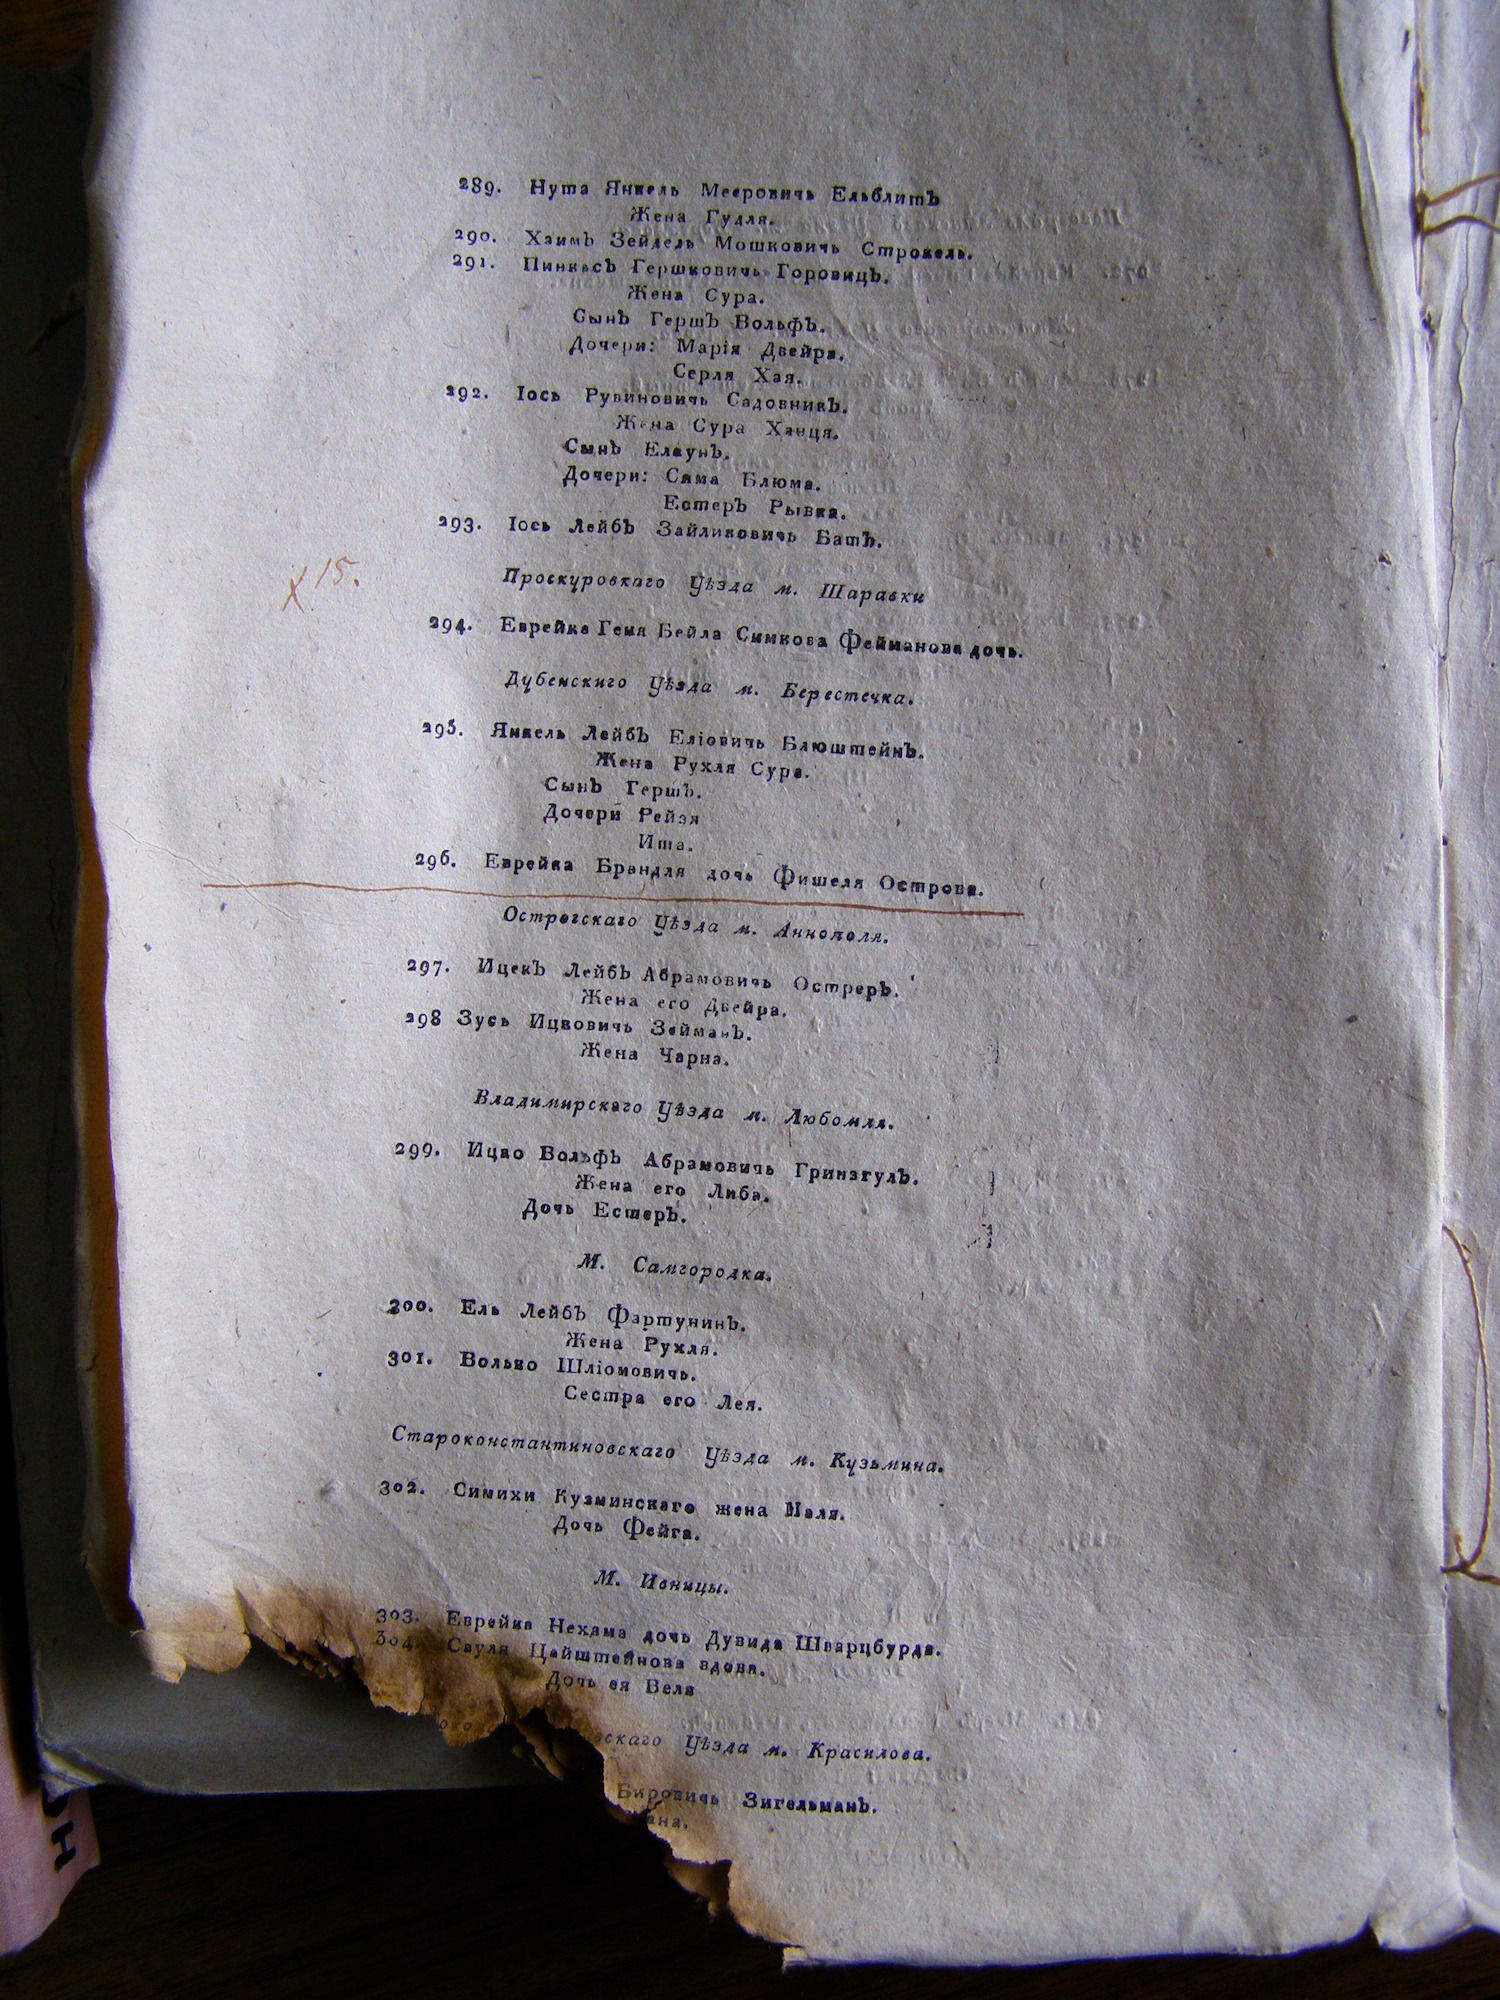 289. Нута Янкель Мееровичь Ельблитъ
Жена Гудля.
290. Хаимъ Зейдель Мошковичь Строкель.
291. Пинкасъ Гершковичь Горовицъ.
Жена Сура.
Сынъ Гершъ Вольфъ.
Дочери: Марія Двейра.
Серля Хая.
292. Іось Рувиновичь Садовникъ.
Жена Сура Ханця.
Сынъ Елкунъ.
Дочери: Сима Блюма.
Естеръ Рывка.
293. Іось Лейбъ Зайликовичь Батъ.
х 15.
Проскуровкаго Уѣзда м. Шаравки
294. Еврейка Геня Бейла Симкова Фейманова дочь.
Дубенскиго Уѣзда м. Берестечка.
295. Янкель Лейбъ Еліовичь Блюштейнъ.
Жена Рухля Сура.
Сынъ Гершъ.
Дочери Рейзя
Ита.
296. Еврейка Брандля дочь Фишеля Острова.
Острогскаго Уѣзда м. Аннополя.
297. Ицекъ Лейбъ Абрамовичь Остреръ.
Жена его Двейра.
298 Зусь Ицковичь Зейманъ.
Жена Чарна.
Владимирскаго Уѣзда м. Любомля.
299. Ицко Вольфъ Абрамовичь Гринзгулъ.
Жена его Либа.
Дочь Естеръ.
М. Самгородка.
300. Ель Лейбъ Фартунинъ.
Жена Рухля.
301. Волько Шліомовичь.
Сестра его Лея.
Староконстантиновскаго Уѣзда м. Кузьмина.
302. Симихи Кузминскаго жена Маля.
Дочь Фейга.
М. Ивницы.
303. Еврейка Нехама дочь Дувида Шварцбурда.
304. Сауля Цайштейнова вдова.
Дочь ея Веля
вскаго Уѣзда м. Красилова.
Бировичь Зигельманъ.
ана.